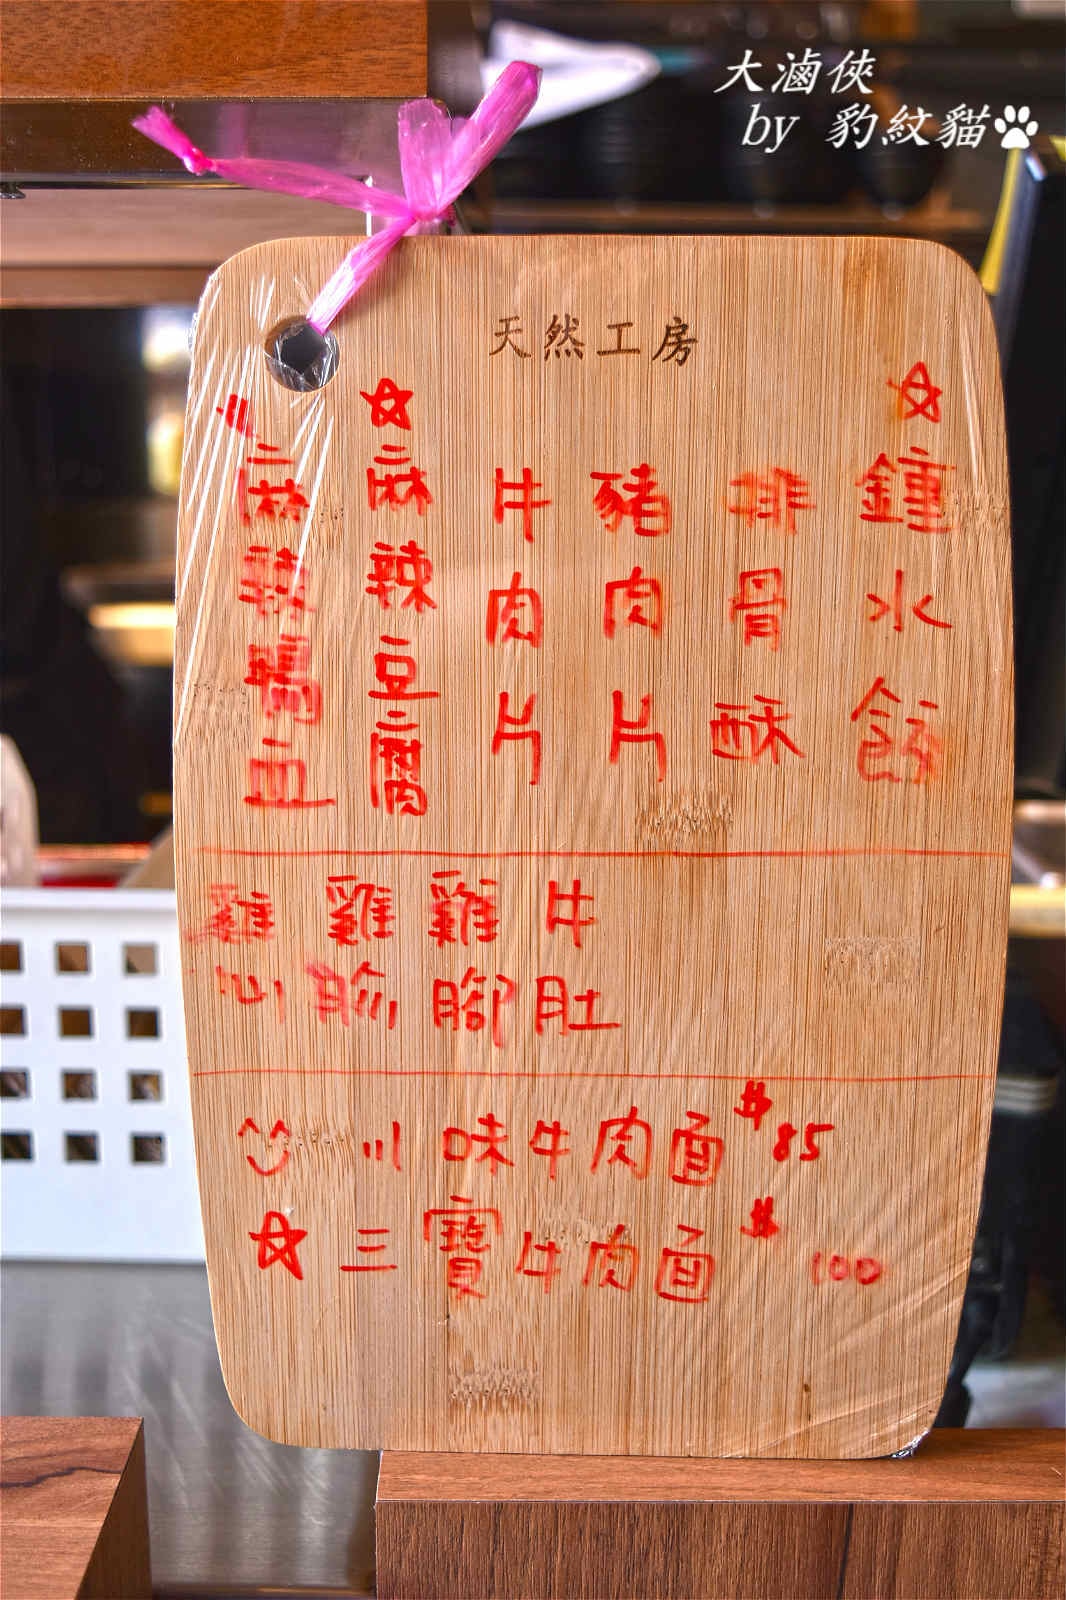 大滷俠
by 豹紋貓
天然工房
鍾水餃
排骨酥
豬肉片
牛肉片
麻辣豆腐
麻辣鴨血
牛肚
雞腳
雞胗
雞心
川味牛肉面 $85
三寶牛肉面 $100